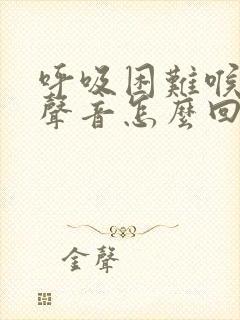 呼吸困難喉
聲音怎麼回
金聲